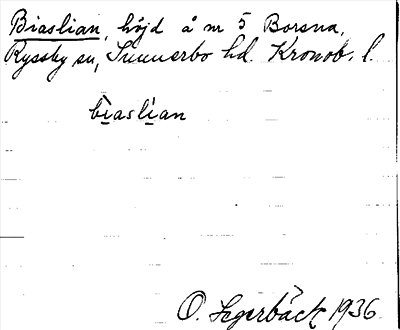 Biaslian, höjd å nr 5 Borsna,
Ryssby sn, Sunnerbo hd. Kronob. l.
bìaslìan
O. Segerbäck 1936